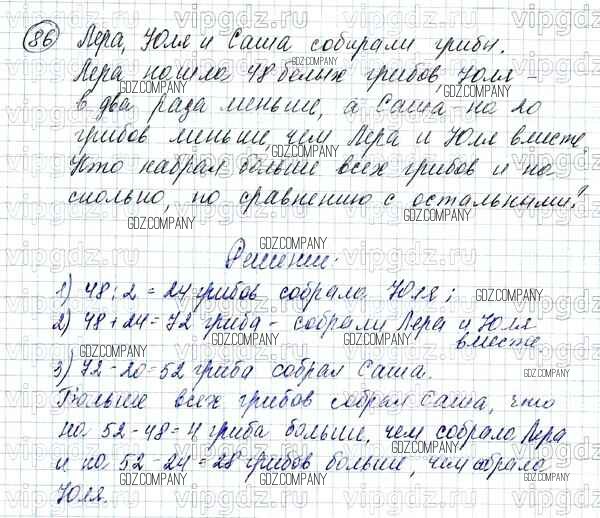 86 Лера, Юля и Саша собирали грибы.
Лера нашла 48 белых грибов, Юля -
в два раза меньше, а Саша на 20
грибов меньше, чем Лера и Юля вместе.
Кто набрал больше всех грибов и на
сколько, по сравнению с остальными?
Решение.
1) 48 : 2 = 24 грибов собрала Юля;
2) 48 + 24 = 72 гриба - собрали Лера и Юля
вместе.
3) 72 - 20 = 52 гриба собрал Саша.
Больше всех грибов собрал Саша, что
на 52 - 48 = 4 гриба больше, чем собрала Лера
и на 52 - 24 = 28 грибов больше, чем собрала
Юля.
GDZ.COMPANY
vipgdz.com